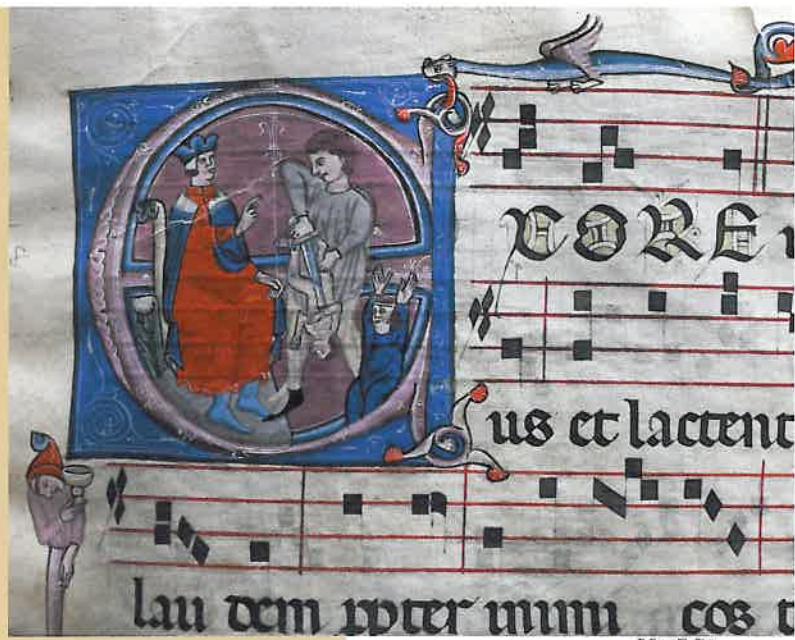 EX ORE
us et lactent
lau dem ppter inimi cos t